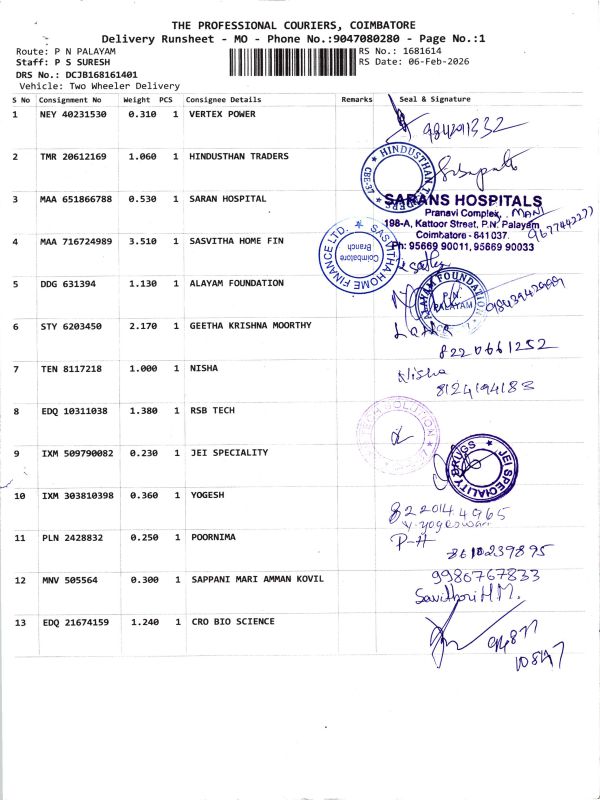 THE PROFESSIONAL COURIERS, COIMBATORE
Delivery Runsheet - MO - Phone No.:9047080280 - Page No.:1
Route: P N PALAYAM
RS No.: 1681614
Staff: P S SURESH
RS Date: 06-Feb-2026
DRS No.: DCJB168161401
Vehicle: Two Wheeler Delivery
S No Consignment No Weight PCS Consignee Details Remarks Seal & Signature
1 NEY 40231530 0.310 1 VERTEX POWER
2 TMR 20612169 1.060 1 HINDUSTHAN TRADERS
HINDUSTHAN TRADERS
3 MAA 651866788 0.530 1 SARAN HOSPITAL
SARANS HOSPITALS
Pranavi Complex, MANI
198-A, Kattoor Street, P.N. Palayam
Coimbatore - 641 037.
Ph: 95669 90011, 95669 90033
9677442277
4 MAA 716724989 3.510 1 SASVITHA HOME FIN
SASVITHA HOME FINANCE LTD.
Coimbatore
Branch
5 DDG 631394 1.130 1 ALAYAM FOUNDATION
ALAYAM FOUNDATION
P.N.
PALAYAM
6 STY 6203450 2.170 1 GEETHA KRISHNA MOORTHY
Latha
8220661252
7 TEN 8117218 1.000 1 NISHA
Nisha
8124194183
8 EDQ 10311038 1.380 1 RSB TECH
9 IXM 509790082 0.230 1 JEI SPECIALITY
JEI SPECIALITY DRUGS
10 IXM 303810398 0.360 1 YOGESH
8220144965
Y. Yogeswari
11 PLN 2428832 0.250 1 POORNIMA
P-H
8610239895
12 MNV 505564 0.300 1 SAPPANI MARI AMMAN KOVIL
9986767833
Savithori H.M.
13 EDQ 21674159 1.240 1 CRO BIO SCIENCE
94877
10847